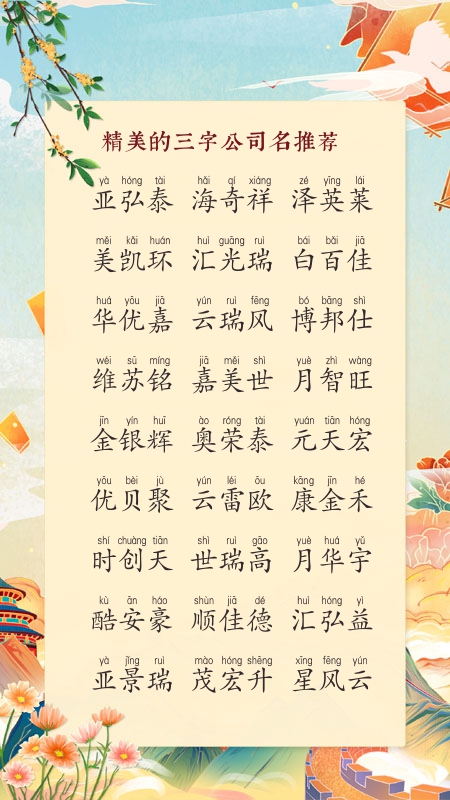 精美的三字公司名推荐
yà hóng tài hǎi qí xiáng zé yīng lái
亚弘泰 海奇祥 泽英莱
měi kǎi huán huì guāng ruì bái bǎi jiā
美凯环 汇光瑞 白百佳
huá yōu jiā yún ruì fēng bó bāng shì
华优嘉 云瑞风 博邦仕
wéi sū míng jiā měi shì yuè zhì wàng
维苏铭 嘉美世 月智旺
jīn yín huī ào róng tài yuán tiān hóng
金银辉 奥荣泰 元天宏
yōu bèi jù yún léi ōu kāng jīn hé
优贝聚 云雷欧 康金禾
shí chuàng tiān shì ruì gāo yuè huá yǔ
时创天 世瑞高 月华宇
kù ān háo shùn jiā dé huì hóng yì
酷安豪 顺佳德 汇弘益
yà jǐng ruì mào hóng shēng xīng fēng yún
亚景瑞 茂宏升 星风云